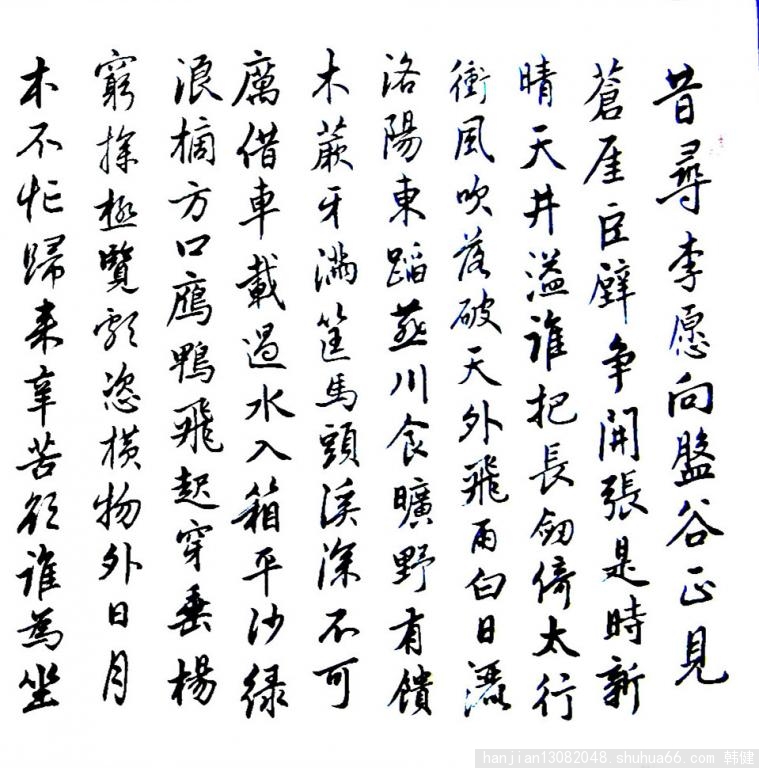 昔尋李愿向盤谷正見
蒼厓巨壁争開張是時新
晴天井溢誰把長劒倚太行
衝風吹落破天外飛雨白日灑
洛陽東蹈燕川食曠野有饋
木蕨牙滿筐馬頭溪深不可
厲借車載過水入箱平沙緑
浪摘方口鴈鴨飛起穿垂楊
窮探極覽頗恣横物外日月
本不忙歸来辛苦欲誰為坐
hanjian13082048.shuhua66.com 韩健